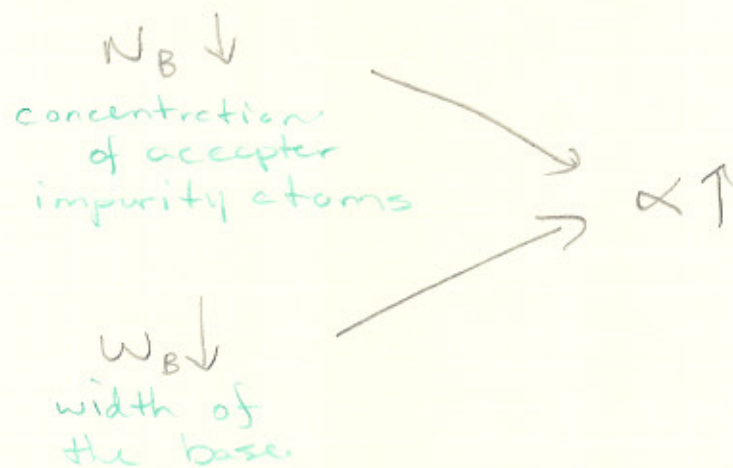 N_B ↓
concentration
of accepter
impurity atoms
∝ ↑
W_B ↓
width of
the base.